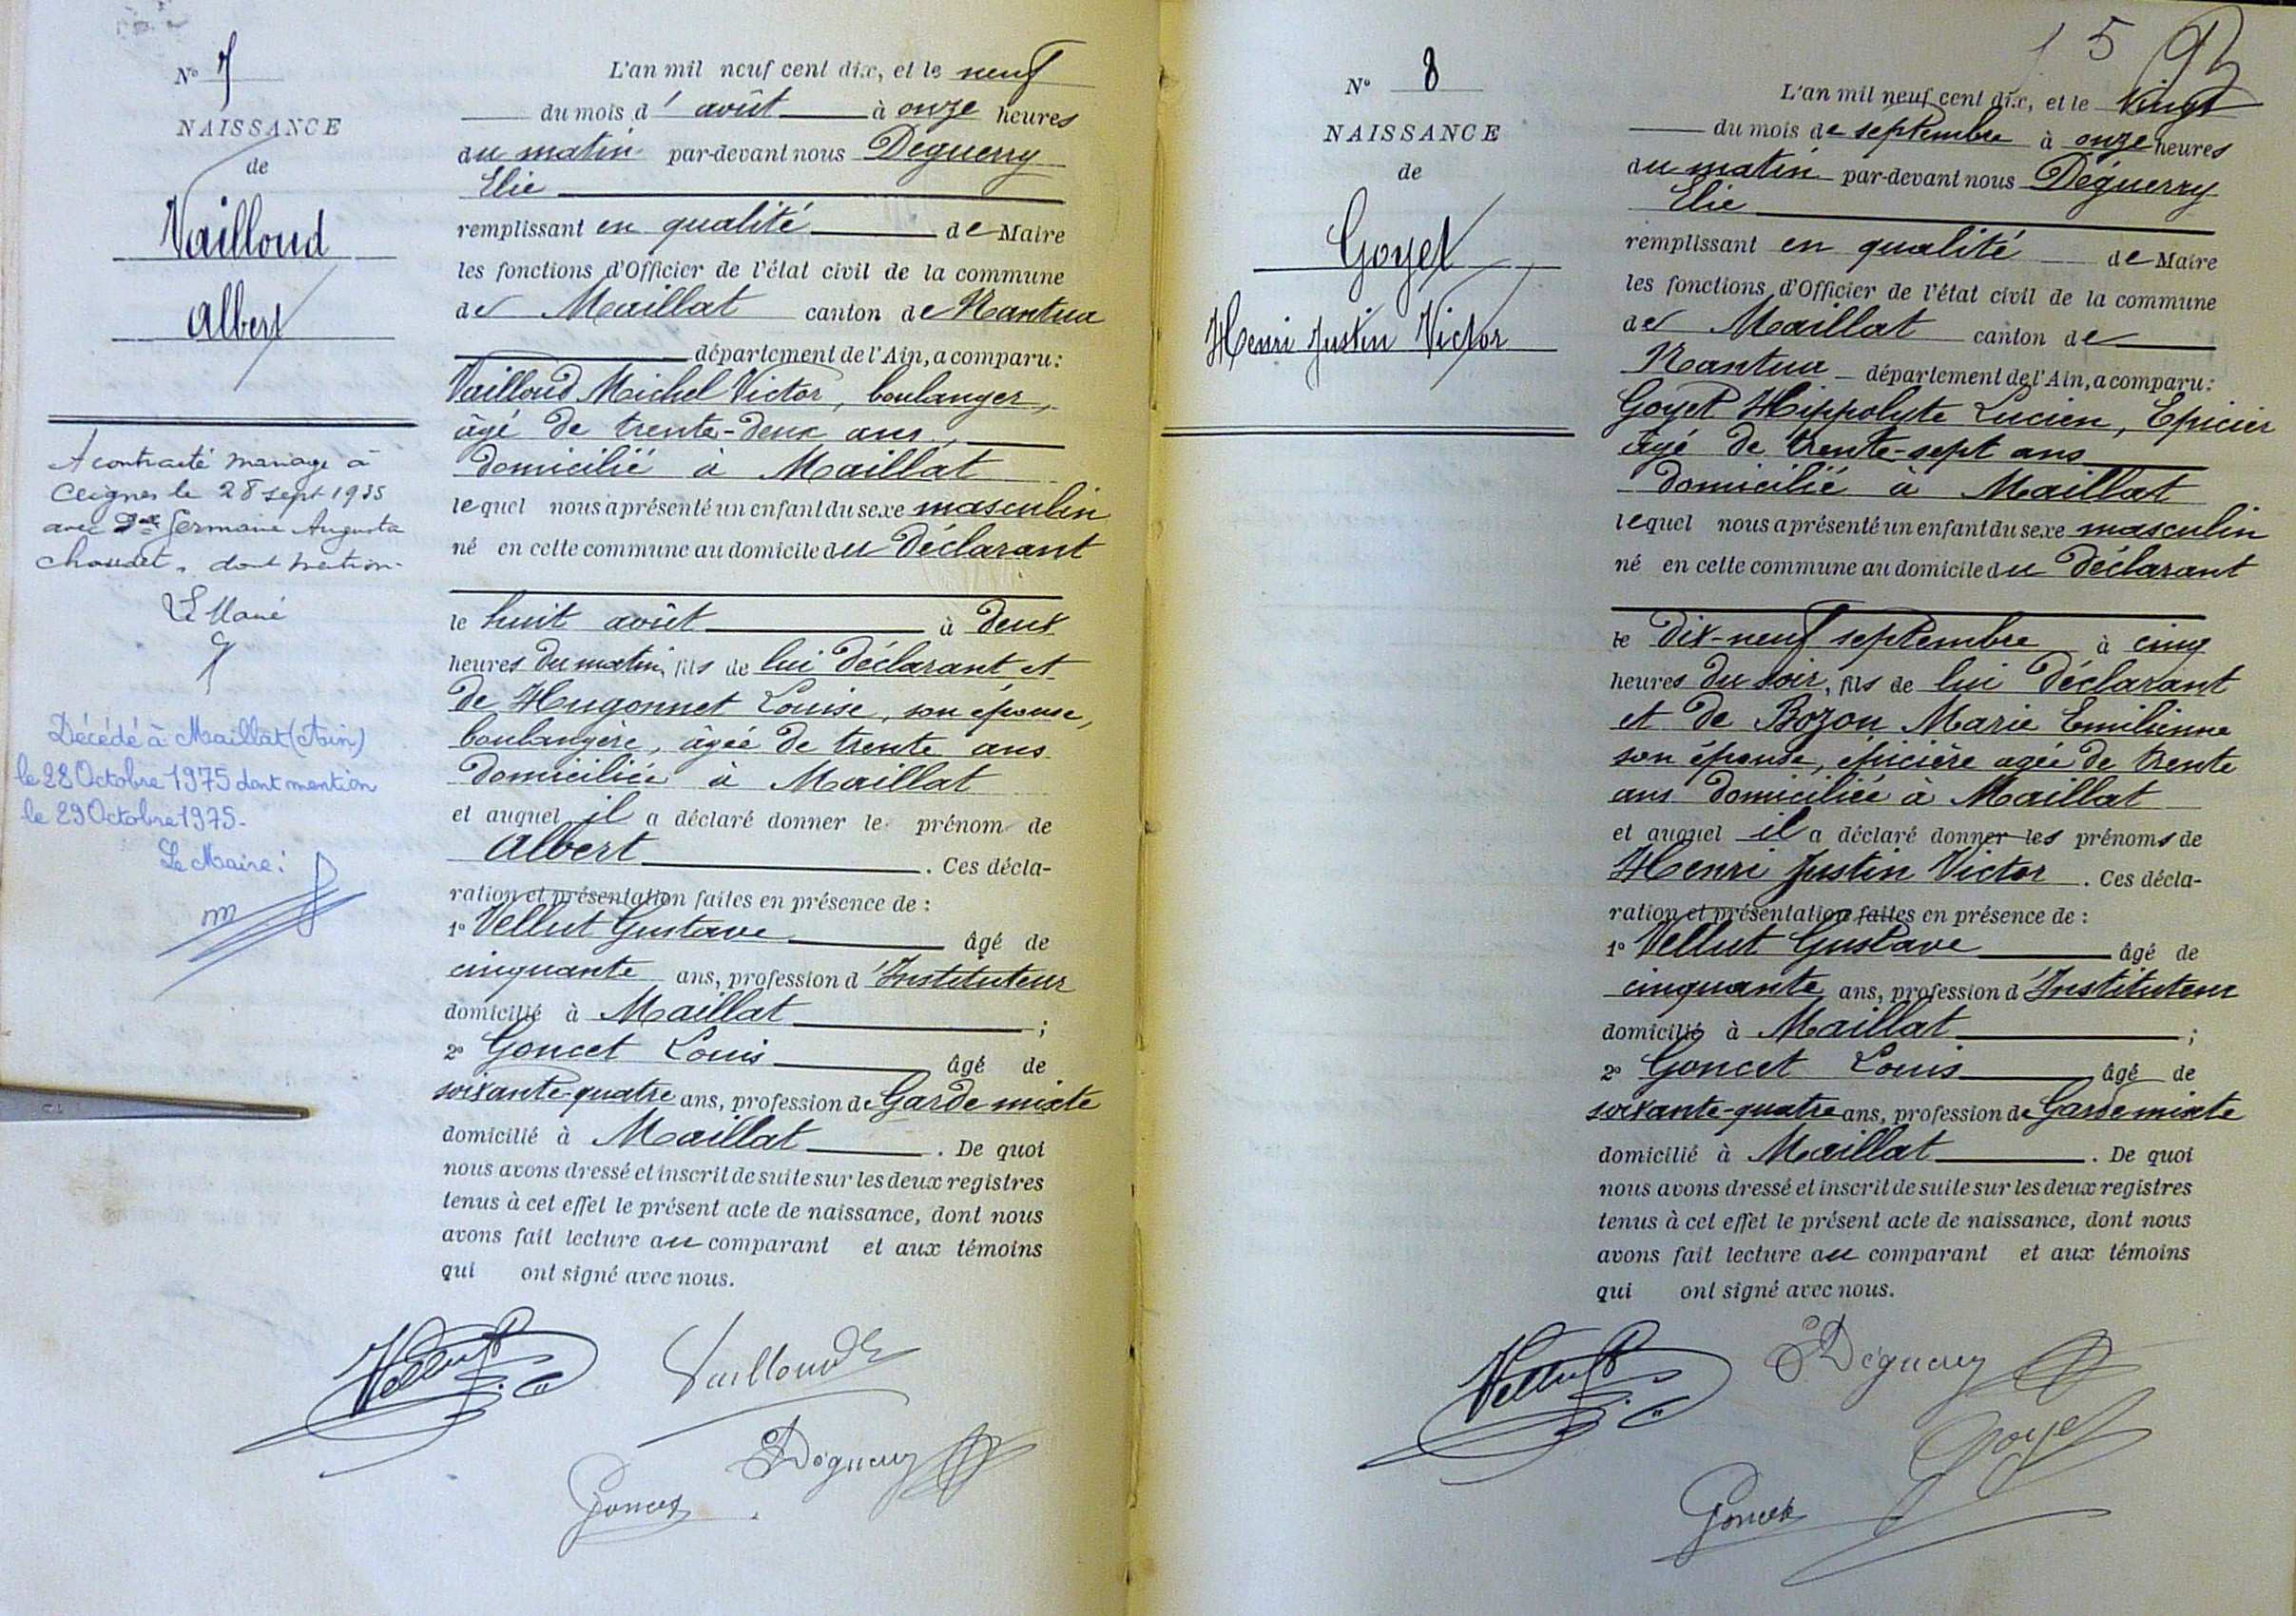 N° 7
NAISSANCE
de
Vailloud
Albert
A contracté mariage à
Ceignes le 28 sept 1935
avec Delle Germaine Augusta
Chaudet, dont mention.
Le Maire
Décédé à Maillat (Ain)
le 28 Octobre 1975 dont mention
le 29 Octobre 1975.
Le Maire:
L'an mil neuf cent dix, et le neuf
du mois d'août à onze heures
du matin par-devant nous Déguerry
Elie
remplissant en qualité de Maire
les fonctions d'Officier de l'état civil de la commune
de Maillat canton de Nantua
département de l'Ain, a comparu:
Vailloud Michel Victor, boulanger,
âgé de trente-deux ans,
domicilié à Maillat
lequel nous a présenté un enfant du sexe masculin
né en cette commune au domicile du déclarant
le huit août à deux
heures du matin, fils de lui déclarant et
de Hugonnet Louise, son épouse,
boulangère, âgée de trente ans
domiciliée à Maillat
et auquel il a déclaré donner le prénom de
Albert. Ces décla-
ration et présentation faites en présence de:
1° Vellut Gustave âgé de
cinquante ans, profession d'Instituteur
domicilié à Maillat;
2° Goncet Louis âgé de
soixante-quatre ans, profession de Garde mixte
domicilié à Maillat. De quoi
nous avons dressé et inscrit de suite sur les deux registres
tenus à cet effet le présent acte de naissance, dont nous
avons fait lecture au comparant et aux témoins
qui ont signé avec nous.
Vellut Vailloud
Déguerry
Goncet
15
N° 8
NAISSANCE
de
Goyet
Henri Justin Victor
L'an mil neuf cent dix, et le vingt
du mois de septembre à onze heures
du matin par-devant nous Déguerry
Elie
remplissant en qualité de Maire
les fonctions d'Officier de l'état civil de la commune
de Maillat canton de
Nantua département de l'Ain, a comparu:
Goyet Hippolyte Lucien, Epicier
âgé de trente-sept ans
domicilié à Maillat
lequel nous a présenté un enfant du sexe masculin
né en cette commune au domicile du déclarant
le dix-neuf septembre à cinq
heures du soir, fils de lui déclarant
et de Bozon Marie Emilienne
son épouse, épicière agée de trente
ans domiciliée à Maillat
et auquel il a déclaré donner les prénoms de
Henri Justin Victor. Ces décla-
ration et présentation faites en présence de:
1° Vellut Gustave âgé de
cinquante ans, profession d'Instituteur
domicilié à Maillat;
2° Goncet Louis âgé de
soixante-quatre ans, profession de Garde mixte
domicilié à Maillat. De quoi
nous avons dressé et inscrit de suite sur les deux registres
tenus à cet effet le présent acte de naissance, dont nous
avons fait lecture au comparant et aux témoins
qui ont signé avec nous.
Vellut E Déguerry
Goyet
Goncet